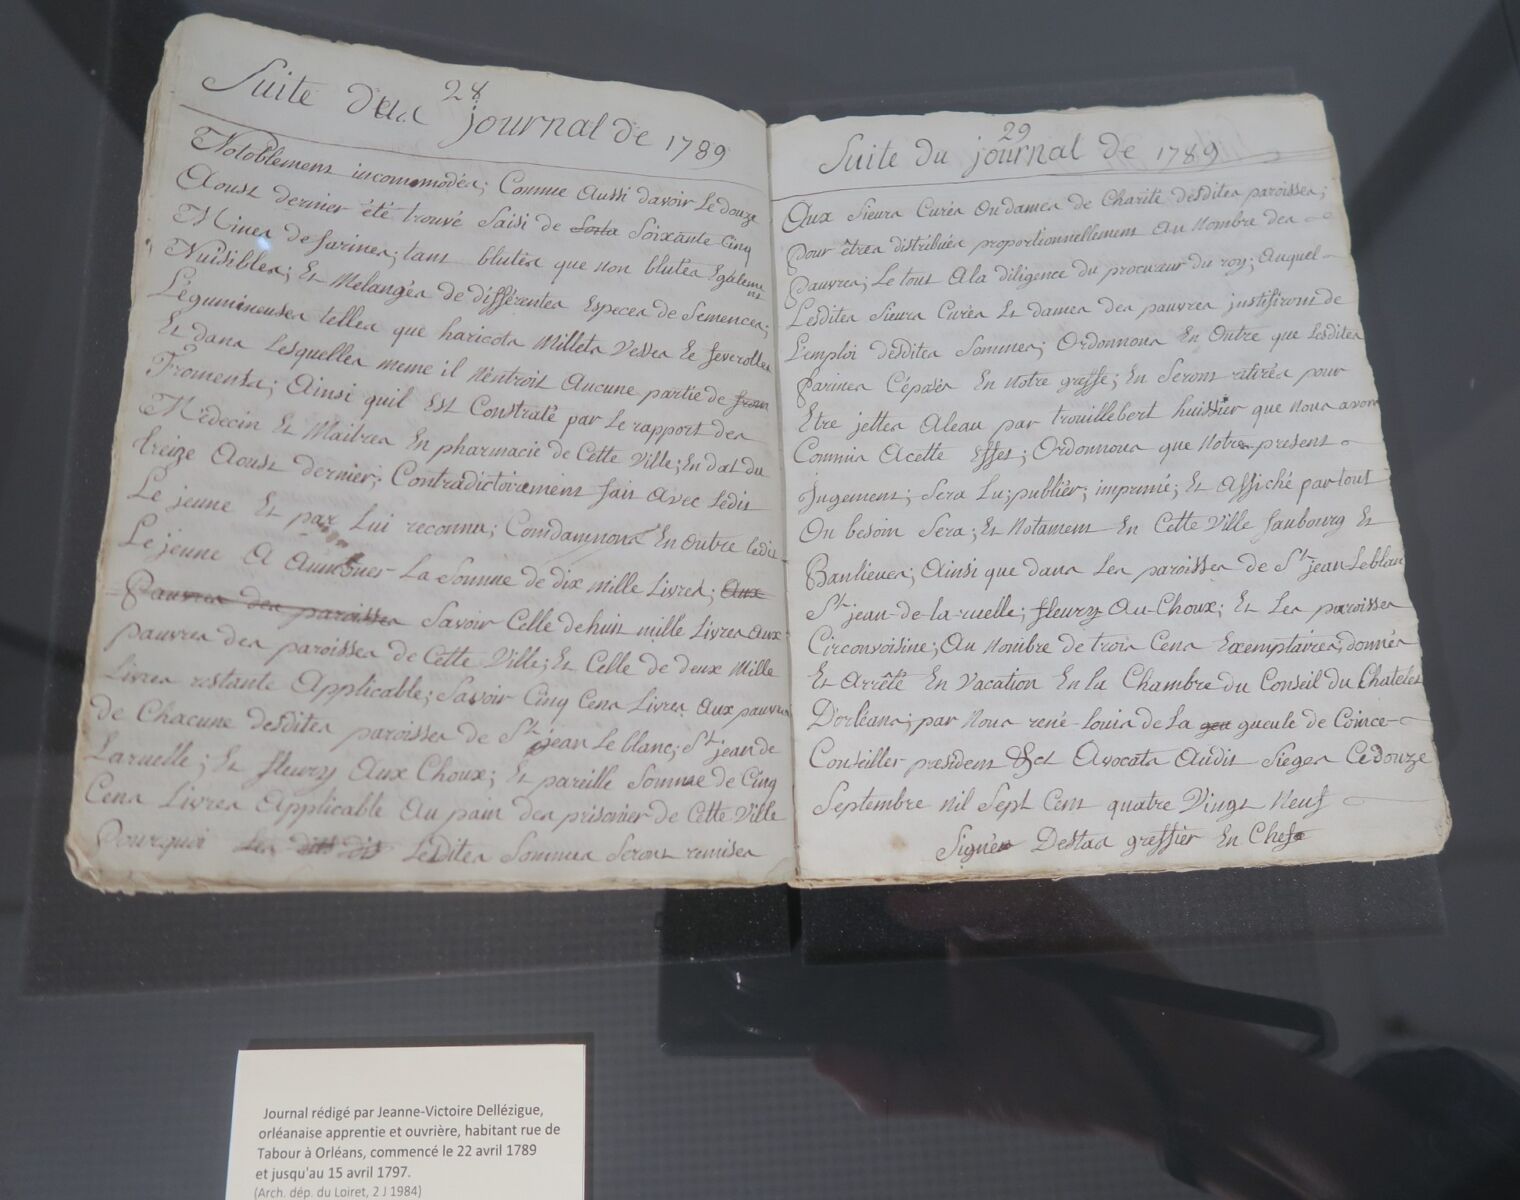 28
Suite du journal de 1789
Notablement incommodés; Comme Aussi davoir Le douze
Aoust dernier été trouvé Saisi de Soixante Cinq
Mines de farines; tant blutés que non blutés Egalement
Nuisibles; Et Mélangés de différentes Especes de Semences;
Légumineuses telles que haricots Millets Vesses Et feverolles
Et dans Lesquelles meme il N'entroit Aucune partie de
Froments; Ainsi quil Est Constraté par Le rapport des
Médecin Et Maitres En pharmacie de Cette Ville; En dat du
treize Aoust dernier; Contradictoirement fait Avec Ledit
Le jeune Et par Lui reconnu; Comdamnons En Outre Ledit
Le jeune A Aumôner La Somme de dix Mille Livres; Aux
Pauvres des paroisses Savoir Celle de huit mille Livres Aux
pauvres des paroisses de Cette Ville; Et Celle de deux Mille
Livres restante Applicable; Savoir Cinq Cens Livres Aux pauvres
de Chacune desdites paroisses de St. jean Le blanc; St. jean de
Laruelle; Et fleury Aux Choux; Et pareille Somme de Cinq
Cens Livres Applicable Au pain des prisonier de Cette Ville
Pourquoi Lesdites Sommes Seront remises
29
Suite du journal de 1789
Aux Sieurs Curés Ou dames de Charité desdites paroisses;
Pour être distribués proportionnellement Au Nombre des
Pauvres; Le tout A la diligence du procureur du roy; Auquel
Lesdites Sieurs Curés Et dames des pauvres justifiront de
L'emploi desdites Sommes; Ordonnons En Outre que Lesdites
Farines Déposés En Notre greffe; En Seront retirés pour
Etre jettes Aleau par trouillebert huissier que Nous avons
Commis Acette Effet; Ordonnons que Notre present
Jugement; Sera Lu; publier; imprimé; Et Affiché partout
Ou besoin Sera; Et Notament En Cette Ville faubourg Et
Banlieues; Ainsi que dans Les paroisses de St. jean Le blanc
St. jean de la ruelle; fleury Au Choux; Et Les paroisses
Circonvoisine; Au Nombre de trois Cens Exemplaires; donnés
Et Arrêté En Vacation En la Chambre du Conseil du Chatelet
D'orléans; par Nous rené-Louis de La gueule de Coince
Conseiller president Et Avocats Audit Sieges Ce douze
Septembre mil Sept Cent quatre Vingt Neuf
Signés Destas greffier En Chef
Journal rédigé par Jeanne-Victoire Dellézigue,
orléanaise apprentie et ouvrière, habitant rue de
Tabour à Orléans, commencé le 22 avril 1789
et jusqu'au 15 avril 1797.
(Arch. dép. du Loiret, 2 J 1984)